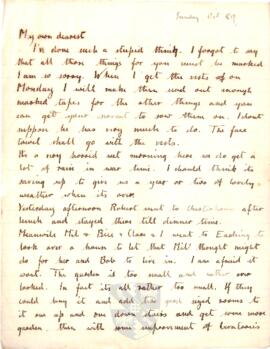 Sunday Oct 8th
My own dearest
I'm done such a stupid think. I forgot to say
that all those things for you must be marked
I am so sorry. When I get the vests of on
Monday I will make then send out enough
marked tapes for the other things and you
can get your servant to sew them on. I dont
suppose he has very much to do. The face
towel shall go with the vests.
Its a very horrid wet morning here we do get a
lot of rain in war time. I should think its
saving up to give us a year or two of lovely
weather when its over
Yesterday afternoon Robert went to after
lunch and stayed there till dinner time.
Meanwile Mil & Bill & Clare & I went to Easking to
look over a house to let that Bill thought might
do for her and Bob to live in. I am afraid it
wont. The garden is too small and rather over
looked. In fact its all rather too small. If they
could buy it and add two good sized rooms to
it one up and one down stairs and get some more
garden. then with some improvement of lavatories